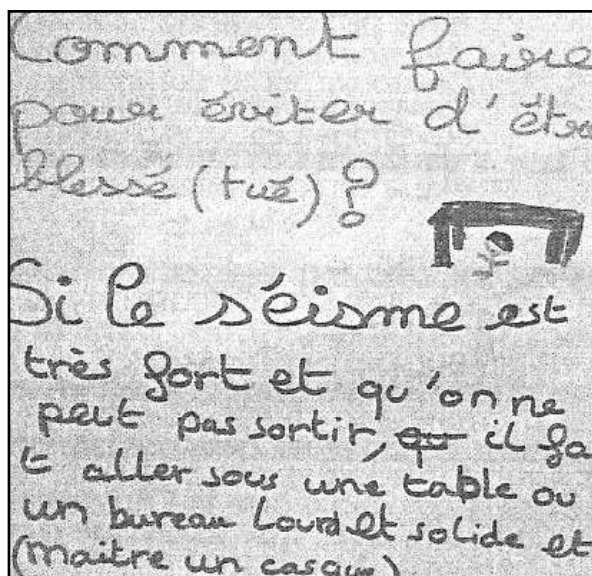 Comment faire
pour éviter d'être
blessé (tué) ?
Si le séisme est
très fort et qu'on ne
peut pas sortir, il fa
t aller sous une table ou
un bureau lourd et solide et
(maitre un casque)